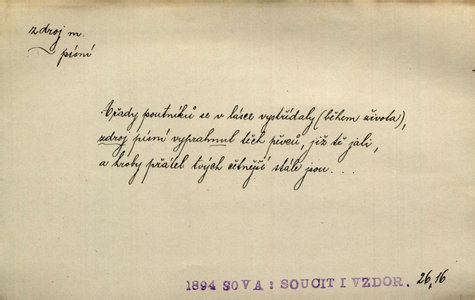 zdroj m.
~ písní
Vřady poutníků se v lásce vystřídaly (během života),
zdroj písní vyprahnul těch pěvců, již tě jali,
a hroby přátel tvých četnější stále jsou...
1894 SOVA: SOUCIT I VZDOR. 26,16